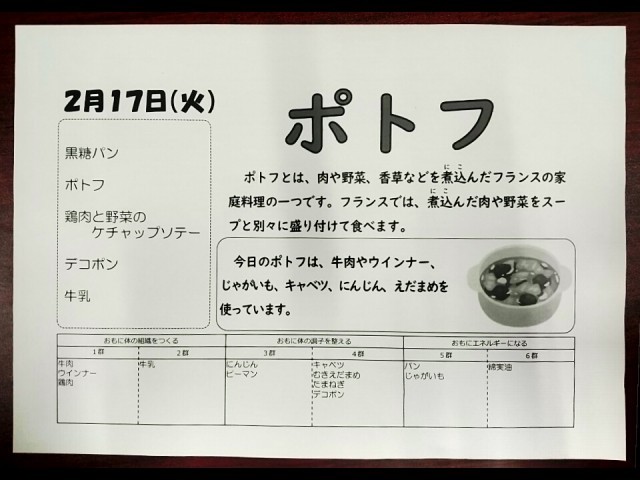 2月17日(火)
ポトフ
黒糖パン
ポトフ
鶏肉と野菜の
ケチャップソテー
デコポン
牛乳
ポトフとは、肉や野菜、香草などを煮込んだフランスの家
庭料理の一つです。フランスでは、煮込んだ肉や野菜をスー
プと別々に盛り付けて食べます。
今日のポトフは、牛肉やウインナー、
じゃがいも、キャベツ、にんじん、えだまめを
使っています。
おもに体の組織をつくる おもに体の調子を整える おもにエネルギーになる
1群 2群 3群 4群 5群 6群
牛肉 牛乳 にんじん キャベツ パン 綿実油
ウインナー ピーマン むきえだまめ じゃがいも
鶏肉 たまねぎ
デコポン